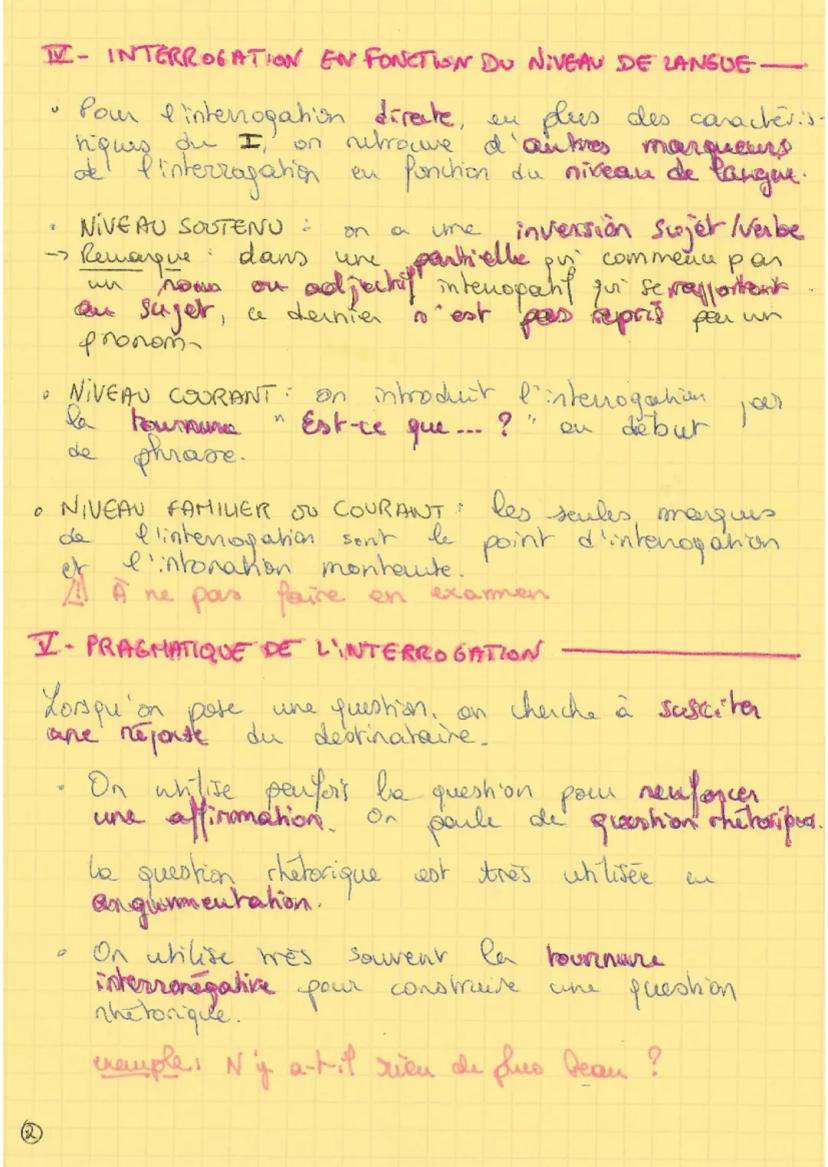 IV - INTERROGATION EN FONCTION DU NIVEAU DE LANGUE
• Pour l'interrogation directe, en plus des caractéris-
tiques du I, on retrouve d'autres marqueurs
de l'interrogation en fonction du niveau de langue.
• NIVEAU SOUTENU : on a une inversion sujet/verbe
→ Remarque : dans une partielle qui commence par
un nom ou adjectif interrogatif qui se rapportent
au sujet, ce dernier n'est pas repris par un
pronom
• NIVEAU COURANT : on introduit l'interrogation par
la tournure "Est-ce que... ?" au début
de phrase.
• NIVEAU FAMILIER OU COURANT : les seules marques
de l'interrogation sont le point d'interrogation
et l'intonation montante.
⚠ À ne pas faire en examen
V - PRAGMATIQUE DE L'INTERROGATION
Lorsqu'on pose une question, on cherche à susciter
une réponse du destinataire.
• On utilise parfois la question pour renforcer
une affirmation. On parle de question rhétorique.
La question rhétorique est très utilisée en
argumentation.
• On utilise très souvent la tournure
interronégative pour construire une question
rhétorique.
exemple : N'y a-t-il rien de plus beau ?
2